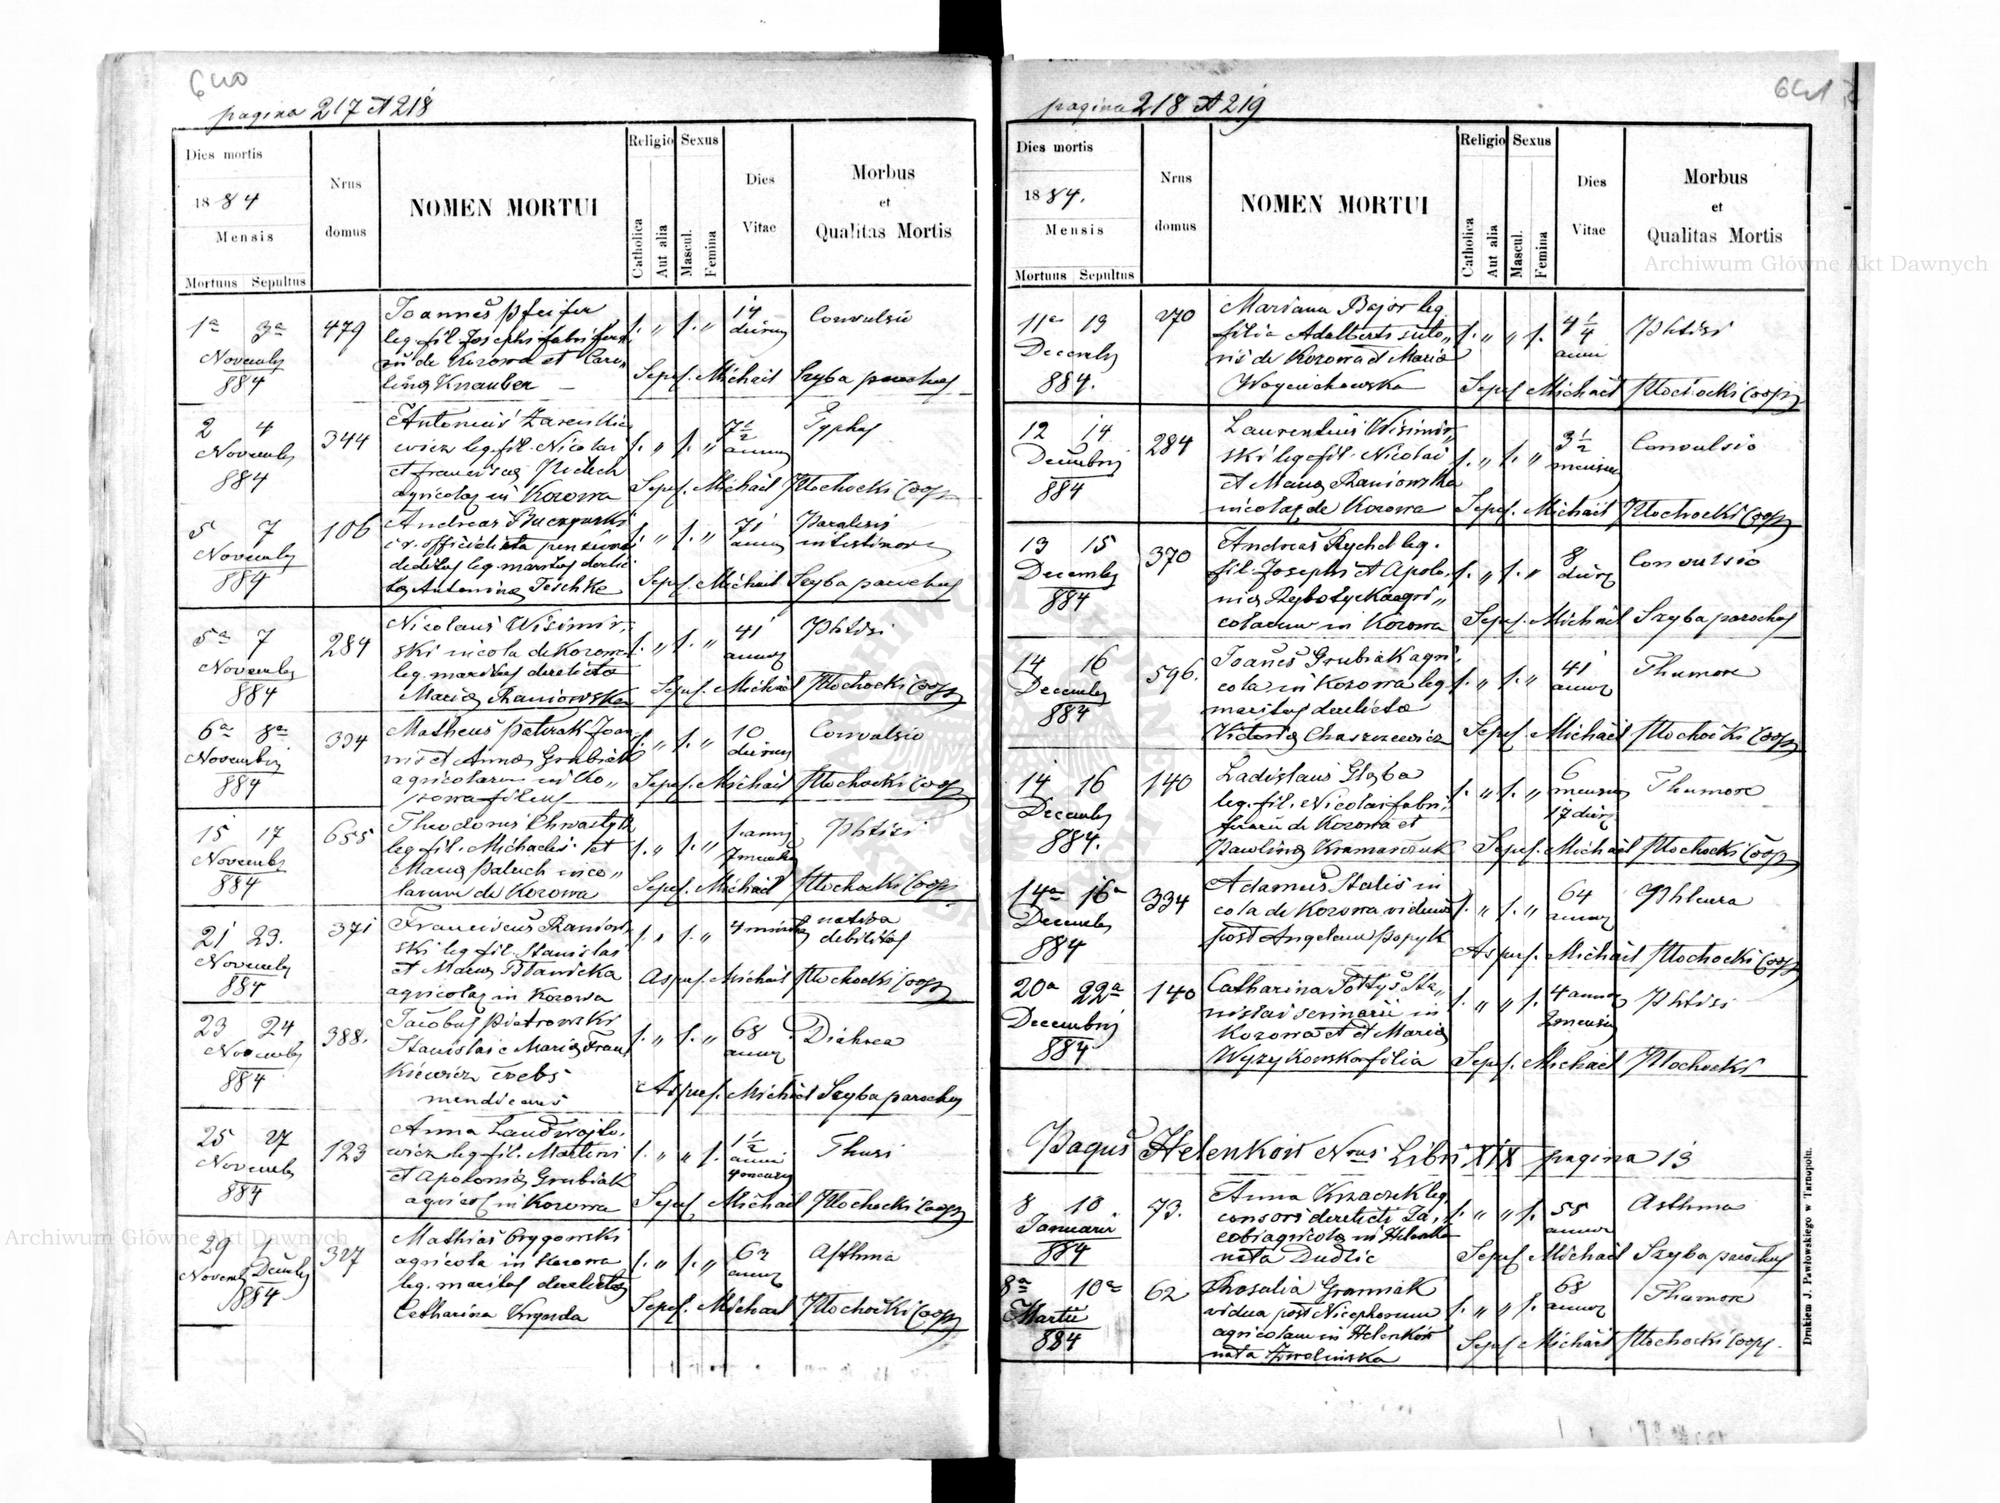 640
pagina 217 et 218
Dies mortis
1884
Mensis
Mortuus Sepultus
Nrus domus
NOMEN MORTUI
Religio
Catholica
Aut alia
Sexus
Mascul.
Femina
Dies Vitae
Morbus
et
Qualitas Mortis
1a 3a
Novemb
884
479
Joannes Pfeifer
leg. fil. Josephi fabri ferra
rii de Kozowa et Caro
lina Knauber
1. " 1. "
14
dierum
Convulsio
Sepul. Michael Szyba parochus
2 4
Novemb
884
344
leg. fil. Nicolai
et Francisca
agricolae in Kozowa
1. " 1. "
7 1/2
annor
Typhus
Sepul. Michael Kłochocki Coop
5 7
Novemb
884
106
Andreas Buczyński
Antonina Teschke
1. " 1. "
71
annor
Paralesis
intestinor
Sepul. Michael Szyba parochus
5a 7
Novemb
884
284
Nicolaus Wisimir
ski incola de Kozowa
leg. maritus derelicta
Maria Raniowska
1. " 1. "
41
annor
Phtisi
Sepul. Michael Kłochocki Coop
6a 8a
Novembri
884
334
Matheus Paterak Joan
nis et Anna Grubiak
agricolarum in Ko
zowa filius
1. " 1. "
10
dierum
Convulsio
Sepul. Michael Kłochocki Coop
15 17
Novemb
884
655
Theodorus Chwastyk
leg. fil. Michaelis et
Maria Paluch inco
larum de Kozowa
1. " 1. "
1 anni
7 mensiu
Phtisi
Sepul. Michael Kłochocki Coop
21 23.
Novemb
884
371
Franciscus Raniow
ski leg. fil. Stanislai
et Maria
agricolae in Kozowa
1. " 1. "
nativa
debilitas
Aspul. Michael Kłochocki Coop
23 24
Novemb
884
388.
Jacobus Pietrowski
Stanislai e Maria Fran
kiewicz
mendicans
1. " 1. "
68
annor
Diahrea
Aspul. Michael Szyba parochus
25 27
Novemb
884
123
Anna
wicz leg. fil. Martini
et Apolonia Grubiak
agricol in Kozowa
1. " " 1.
1 1/2
anni
4 mensiu
Thusi
Sepul. Michael Kłochocki Coop
29 1
Novemb Decemb
884
327
Mathias Grygowski
agricola in Kozowa
leg. maritus derelicta
Catharina
1. " 1. "
63
annor
Asthma
Sepul. Michael Kłochocki Coop
641
pagina 218 et 219
Dies mortis
1884.
Mensis
Mortuus Sepultus
Nrus domus
NOMEN MORTUI
Religio
Catholica
Aut alia
Sexus
Mascul.
Femina
Dies Vitae
Morbus
et
Qualitas Mortis
11a 13
Decemb
884.
270
Mariana Bajor leg
filia Adalberti suto
ris de Kozowa et Maria
Woyciechowska
1. " " 1.
4 1/4
anni
Phtisi
Sepul Michael Kłochocki Coop
12 14
Decembri
884
284
Laurentius Wisimir
ski leg. fil. Nicolai
et Maria Raniowska
incolae de Kozowa
1. " 1. "
3 1/2
mensiu
Convulsio
Sepul. Michael Kłochocki Coop
13 15
Decemb
884
370
Andreas Rychel leg.
fil. Josephi et Apolo
nia agri
colarum in Kozowa
1. " 1. "
8
dier
Convulsio
Sepul Michael Szyba parochus
14 16
Decemb
884
596.
Joannes Grubiak agri
cola in Kozowa leg.
maritus derelicta
Victoria Chaszczewicz
1. " 1. "
41
annor
Thumore
Sepul Michael Kłochocki Coop
14 16
Decemb
884.
140
Ladislaus Glyba
leg. fil. Nicolai fabri
ferarii de Kozowa et
Paulina Kramarczuk
1. " 1. "
6
mensiu
17 dier
Thumore
Sepul. Michael Kłochocki Coop
14a 16a
Decemb
884
334
Adamus Stalis in
cola de Kozowa viduus
post Angelam Popyk
1. " 1. "
64
annor
Phleura
Aspul. Michael Kłochocki Coop
20a 22a
Decembri
884
140
Catharina Sołtys Sta
nislai
Kozowa et Maria
Wyżykowska filia
1. " " 1.
4 annor
2 mensiu
Phtisi
Sepul Michael Kłochocki
Pagus Helenków Nrus Libri XIX pagina 13
8 10
Januarii
884
73.
Anna Krzaczek leg.
consors derelicti Ja
cobi agricola in Helenków
nata Dudzic
1. " " 1.
55
annor
Asthma
Sepul Michael Szyba parochus
8a 10a
Martii
884
62
Rosalia Gramiak
vidua post Nicephorum
agricolam in Helenków
nata Zwolinska
1. " " 1.
68
annor
Thumore
Sepul Michael Kłochocki Coop.
Drukiem J. Pawłowskiego w Tarnopolu.
Archiwum Główne Akt Dawnych
Archiwum Główne Akt Dawnych